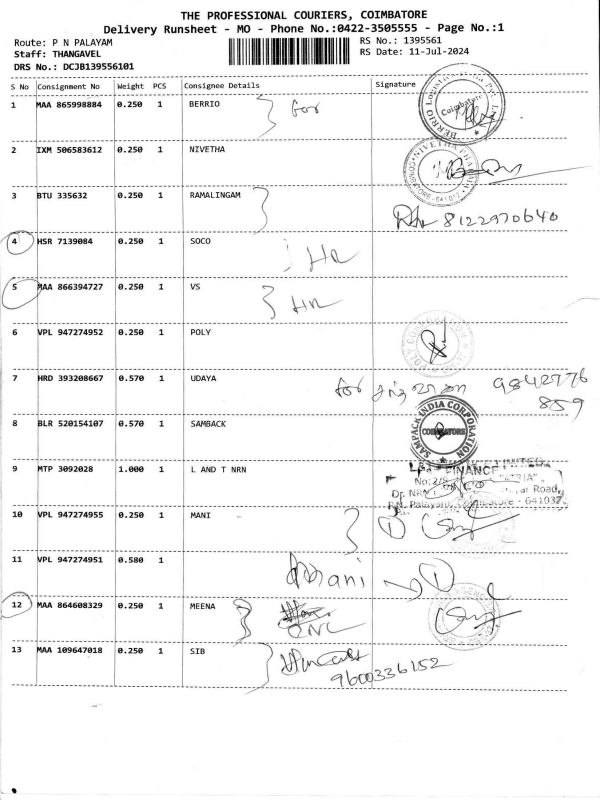 THE PROFESSIONAL COURIERS, COIMBATORE
Delivery Runsheet - MO - Phone No.:0422-3505555 - Page No.:1
Route: P N PALAYAM
Staff: THANGAVEL
DRS No.: DCJB139556101
RS No.: 1395561
RS Date: 11-Jul-2024
S No Consignment No Weight PCS Consignee Details Signature
1 MAA 865998884 0.250 1 BERRIO for
BERRIO Logistics Pvt. Ltd. Coimbatore
2 IXM 506583612 0.250 1 NIVETHA
NIVETHA PHARMA COIMBATORE-641017
3 BTU 335632 0.250 1 RAMALINGAM
8122970640
4 HSR 7139084 0.250 1 SOCO
5 MAA 866394727 0.250 1 VS
6 VPL 947274952 0.250 1 POLY
7 HRD 393208667 0.570 1 UDAYA for 9842776
859
8 BLR 520154107 0.570 1 SAMBACK
SAMPACK INDIA CORPORATION COIMBATORE
9 MTP 3092028 1.000 1 L AND T NRN
FINANCE LIMITED
Dr. NRN Road,
P.N. Palayam, Coimbatore - 641037
10 VPL 947274955 0.250 1 MANI
11 VPL 947274951 0.580 1
Mani
12 MAA 864608329 0.250 1 MEENA
13 MAA 109647018 0.250 1 SIB
9600336152